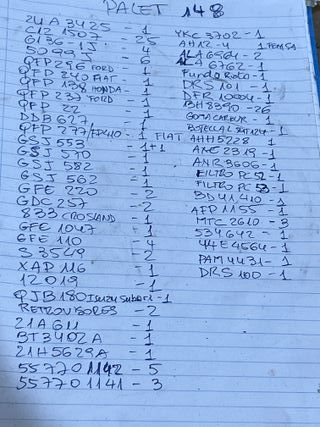 PALET 148
2UA 3425 - 1
C12 1507 - 25
G136-1J - 4
SD995 - 6
QFP 296 FORD - 1
QFP 240 FIAT - 1
QFP 138 HONDA - 1
QFP 237 FORD - 1
QFP 22 - 1
DDB 627 - 1
QFP 277/FP410 - 1 FIAT
GSJ 553 - 1+1
GSJ 570 - 1
GSJ 582 - 1
GSJ 562 - 1
GFE 220 - 2
GDC 257 - 2
833 CROSLAND - 1
GFE 1047 - 1
GFE 110 - 4
S 3549 - 2
XAP 116 - 1
12019 - 1
QJB 180 Isuzu Subaru - 1
RETROVISORES - 2
21A 611 - 1
BT3402A - 1
21H5629A - 1
557701142 - 5
557701141 - 3
YKC 3702 - 1
AH12-4 1
ALA 6964 - 2
ALA 6762 - 1
Funda Roto - 1
DRS 101 - 1
DFR 10004 - 1
BH8390 - 26
- 1
AHH5228 1
AME 2319 - 1
ANR3606 - 1
FILTRO PC 52 - 1
FILTRO PC 53 - 1
BD41410 - 1
AFP1155 - 1
MTC 2610 - 3
534642 - 1
44E4564 - 1
PAM4431 - 1
DRS 100 - 1